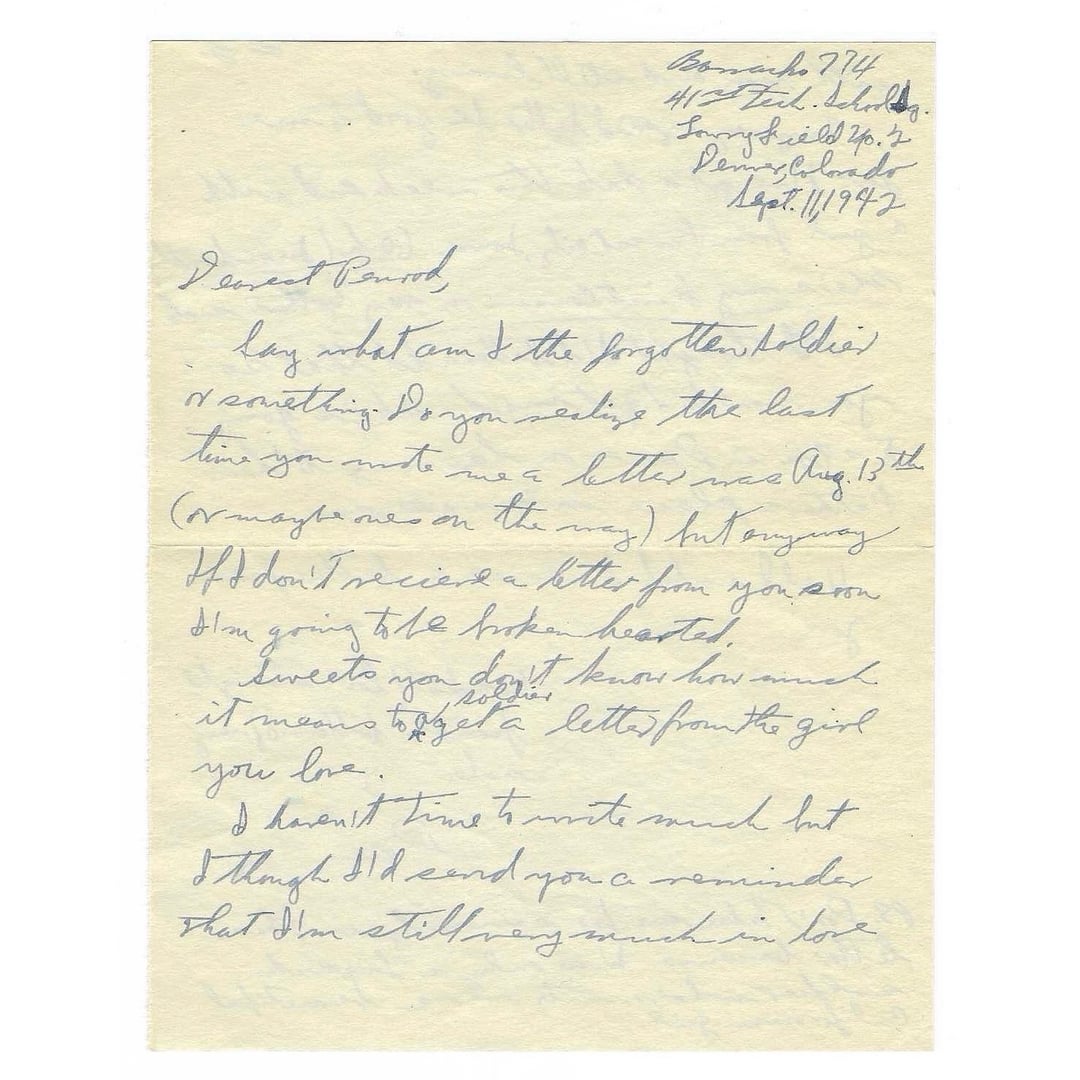 Barracks 774
41st Tech. School Sq.
Lowry Field No. 2
Denver, Colorado
Sept. 11, 1942
Dearest Penrod,
Say what am I the forgotten soldier
or something. Do you realize the last
time you wrote me a letter was Aug. 13th
(or maybe ones on the way) but anyway
If I don't recieve a letter from you soon
I'm going to be broken hearted.
Sweets you don't know how much
soldier
it means to a get a letter from the girl
you love.
I haven't time to write much but
I though I'd send you a reminder
that I'm still very much in love